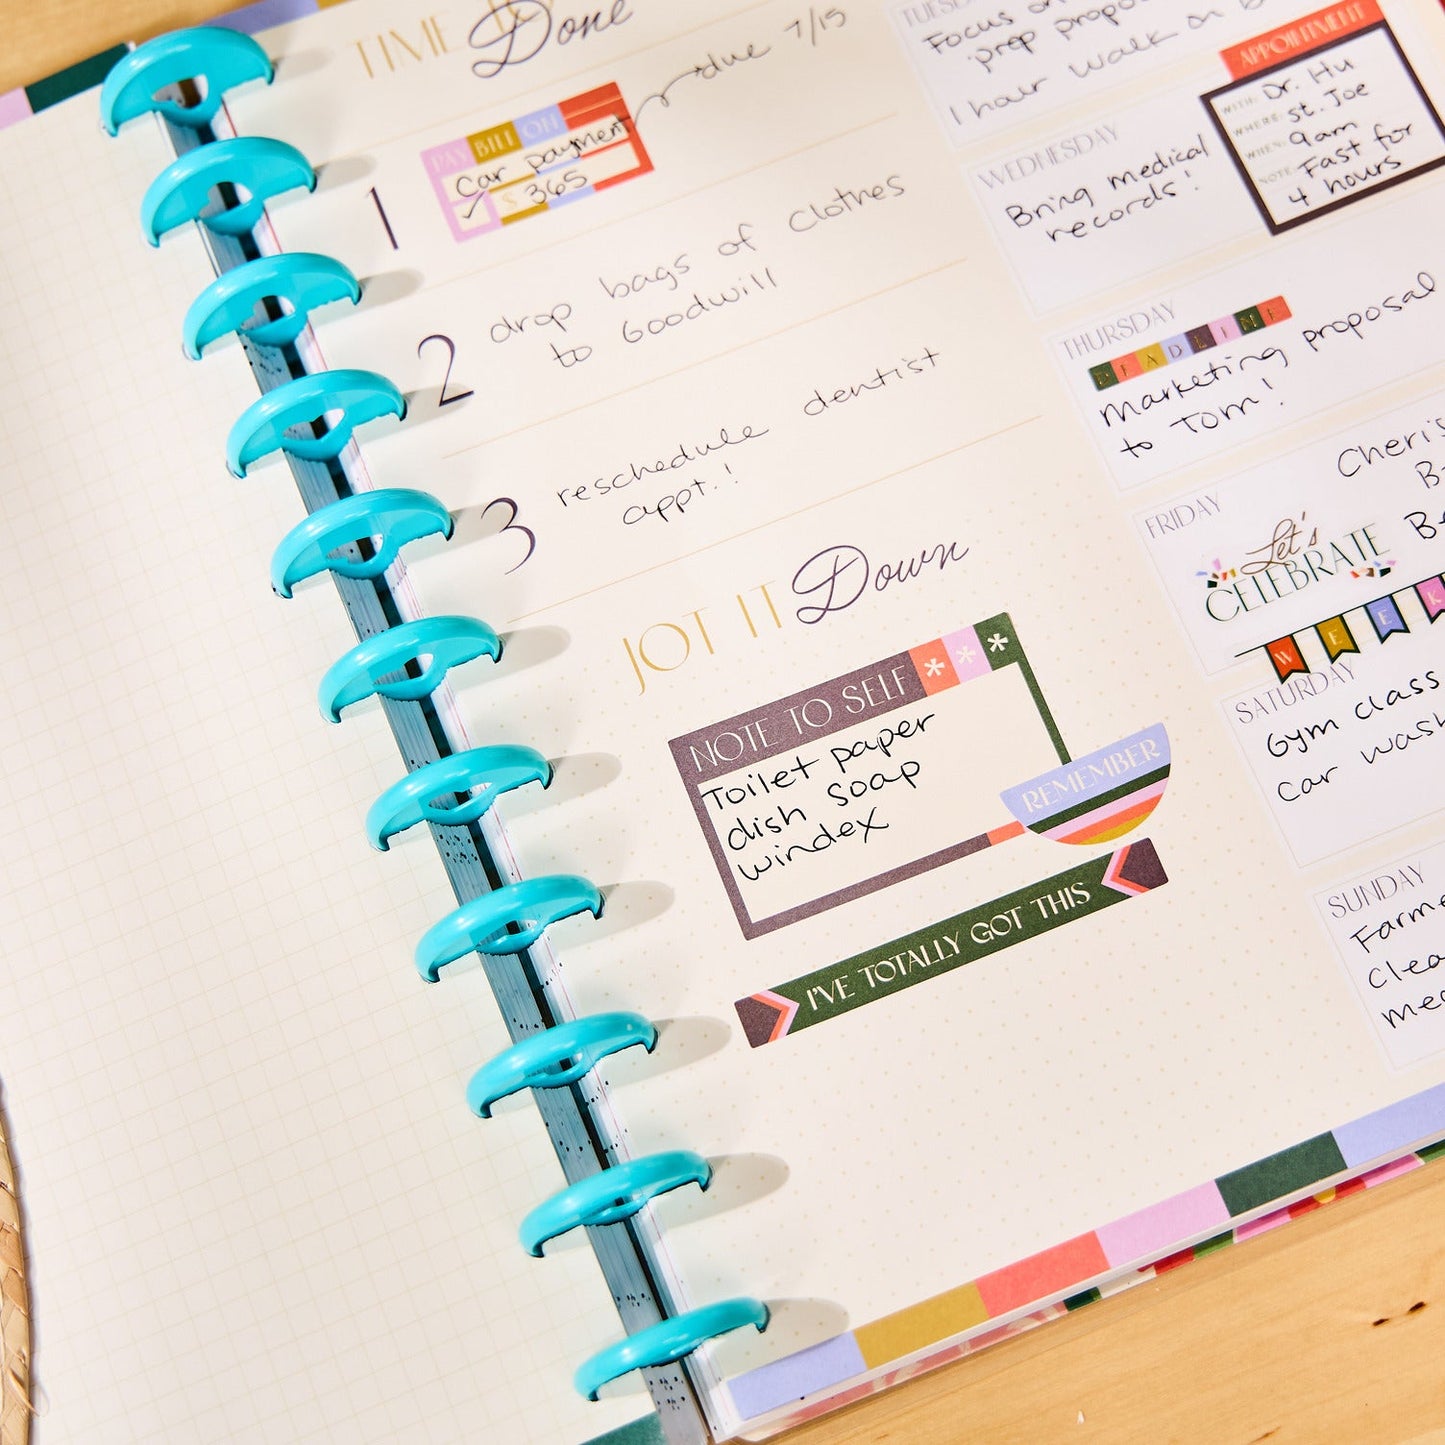 TIME TO Done
due 7/15
PAY BILL ON
Car payment
✓ $ 365
1
2
drop bags of clothes
to Goodwill
3
reschedule dentist
appt.!
JOT IT Down
NOTE TO SELF * * *
Toilet paper
dish soap
windex
REMEMBER
I'VE TOTALLY GOT THIS
TUESDAY
Focus on
prep
1 hour walk
WEDNESDAY
Bring medical
records!
APPOINTMENT
WITH: Dr. Hu
WHERE: St. Joe
WHEN: 9am
NOTE: Fast for
4 hours
THURSDAY
DEADLINE
Marketing proposal
to Tom!
FRIDAY
Let's
CELEBRATE
WEEK
SATURDAY
Gym class
Car wash
SUNDAY